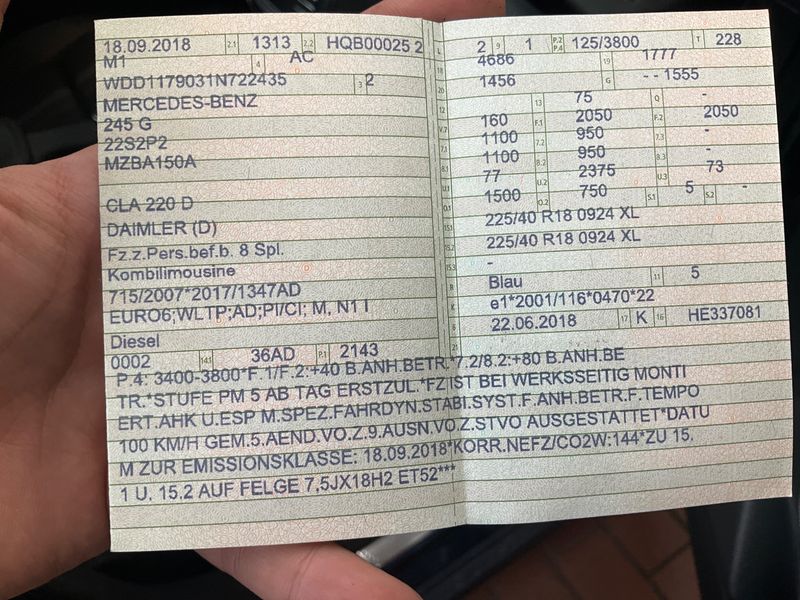 18.09.2018 2.1 1313 2.2 HQB00025 2
M1 4 AC
WDD1179031N722435 3 2
MERCEDES-BENZ
245 G
22S2P2
MZBA150A
CLA 220 D
DAIMLER (D)
Fz.z.Pers.bef.b. 8 Spl.
Kombilimousine
715/2007*2017/1347AD
EURO6;WLTP;AD;PI/CI; M, N1 I
Diesel
0002 14.1 36AD P.1 2143
L 2 9 1 P.2 P.4 125/3800 T 228
18 4686 19 1777
20 1456 G - - 1555
12 13 75 Q -
V.7 160 F.1 2050 F.2 2050
7.1 1100 7.2 950 7.3 -
8.1 1100 8.2 950 8.3 -
U.1 77 U.2 2375 U.3 73
O.1 1500 O.2 750 S.1 5 S.2 -
15.1 225/40 R18 0924 XL
15.2 225/40 R18 0924 XL
15.3 -
R Blau 11 5
K e1*2001/116*0470*22
6 22.06.2018 17 K 16 HE337081
21
P.4: 3400-3800*F.1/F.2:+40 B.ANH.BETR.*7.2/8.2:+80 B.ANH.BE
TR.*STUFE PM 5 AB TAG ERSTZUL.*FZ IST BEI WERKSSEITIG MONTI
ERT.AHK U.ESP M.SPEZ.FAHRDYN.STABI.SYST.F.ANH.BETR.F.TEMPO
100 KM/H GEM.5.AEND.VO.Z.9.AUSN.VO.Z.STVO AUSGESTATTET*DATU
M ZUR EMISSIONSKLASSE: 18.09.2018*KORR.NEFZ/CO2W:144*ZU 15.
1 U. 15.2 AUF FELGE 7,5JX18H2 ET52***